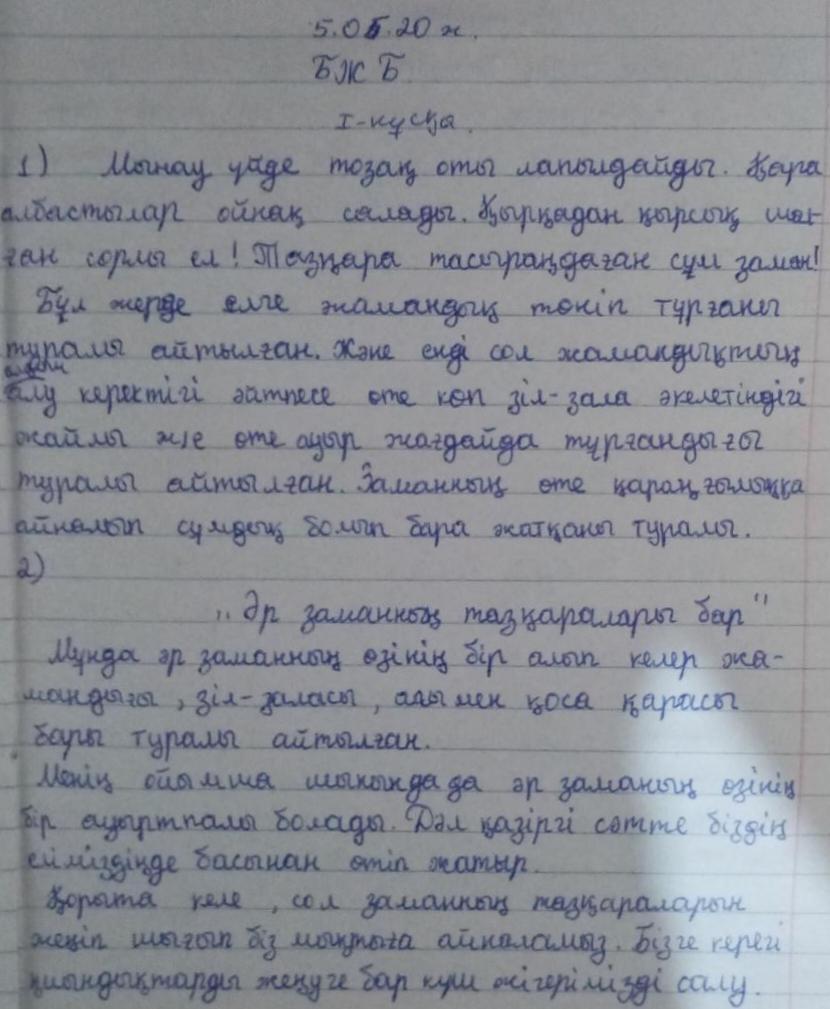 5.05.20 ж.
БЖБ
I-нұсқа.
1) Мынау үйде тозақ оты лапылдайды. Қара
албастылар ойнақ салады. Қырқадан қырсық шал-
ған сорлы ел! Тазқара тасыраңдаған сұм заман!
Бұл жерде елге жамандық төніп тұрғаны
туралы айтылған. Және енді сол жамандықтың
алу керектігі әйтпесе өте көп зіл-зала әкелетіндігі
жайлы және өте ауыр жағдайда тұрғандығы
туралы айтылған. Заманның өте қараңғылыққа
айналып сұмдық болып бара жатқаны туралы.
2)
„Әр заманның тазқаралары бар"
Мұнда әр заманның өзінің бір алып келер жа-
мандығы, зіл-заласы, ағы мен қоса қарасы
бары туралы айтылған.
Менің ойымша шынында да әр заманың өзінің
бір ауыртпалы болады. Дәл қазіргі сәтте біздің
еліміздіңде басынан өтіп жатыр.
Қорыта келе, сол заманның тазқараларын
жеңіп шығып біз мықтыға айналамыз. Бізге керегі
қиындықтарды жеңуге бар күш жігерімізді салу.